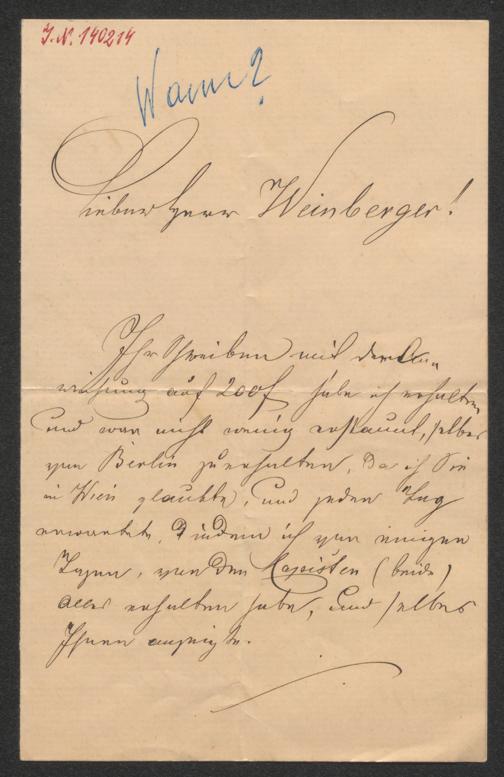 J.N. 140214
Wann?
Lieber Herr Weinberger!
Ihr Schreiben mit der An-
weisung auf 200f habe ich erhalten
und war nicht wenig erstaunt, selbes
von Berlin zu erhalten, da ich Sie
in Wien glaubte, und jeden Tag
erwartete. Indem ich von einigen
Tagen, von den Kopisten (beide)
alles erhalten habe, und selbes
Ihnen anzeigte.